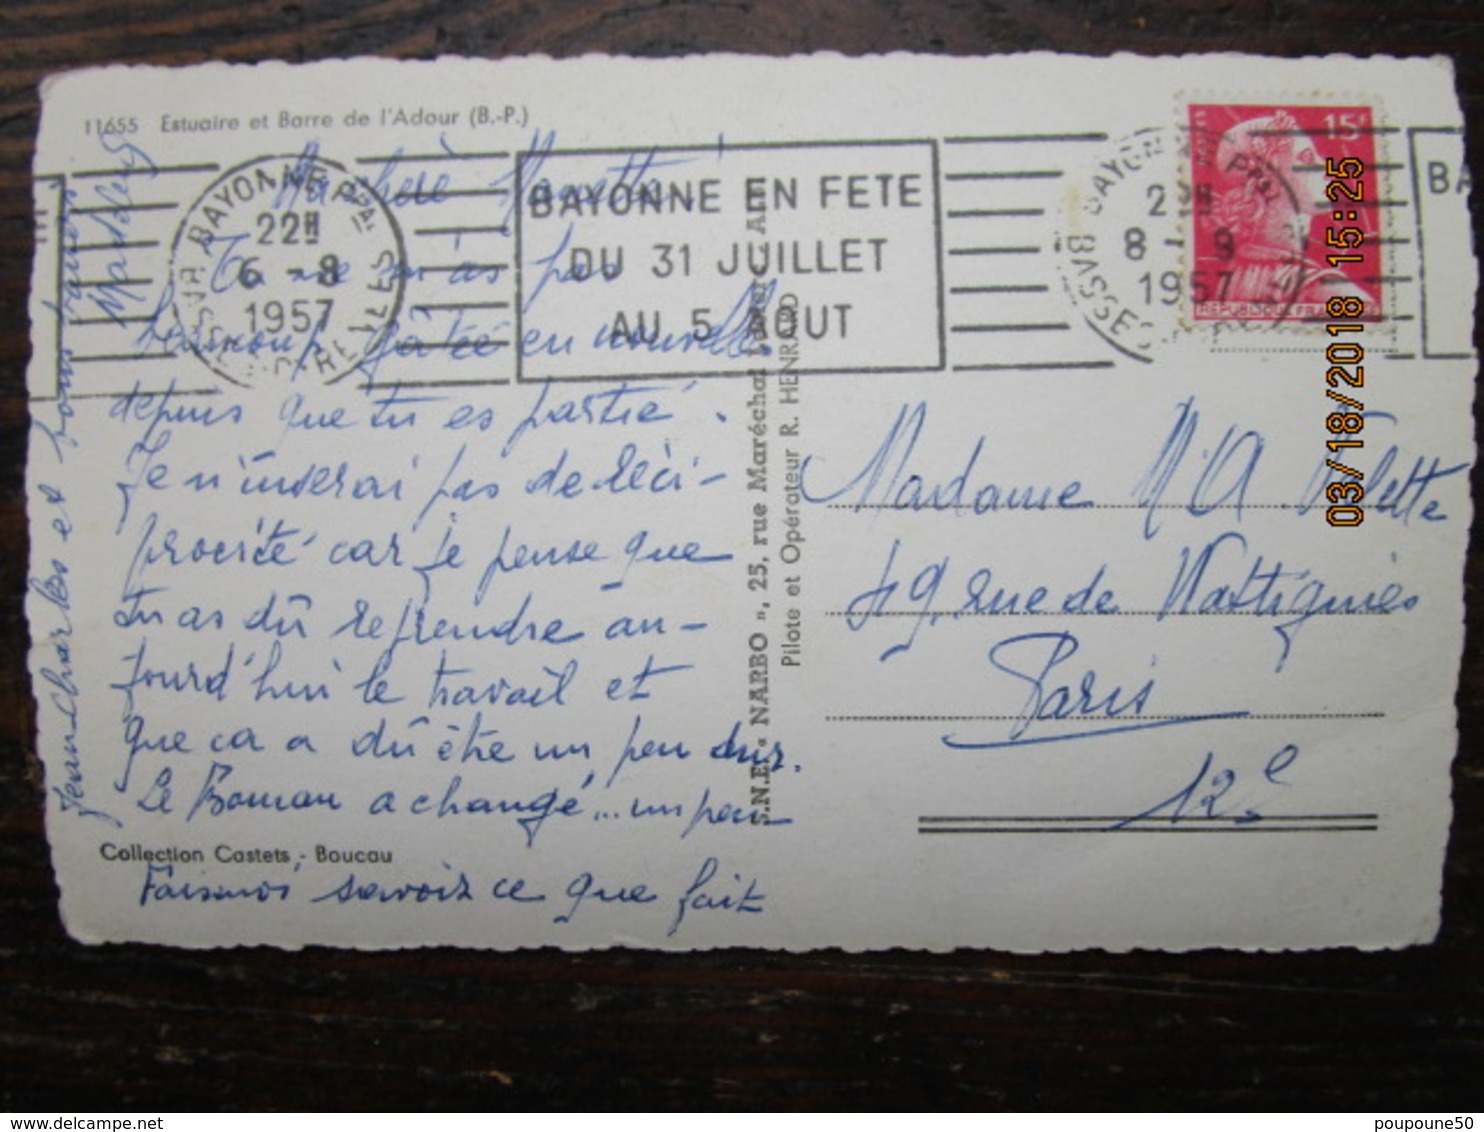 11655 Estuaire et Barre de l'Adour (B.-P.)
Ma chère
Tu ne m'as pas
beaucoup gâtée en nouvelles
depuis que tu es partie.
Je n'userai pas de réci-
procité car je pense que
tu as dû reprendre au-
jourd'hui le travail et
que ça a dû être un peu dur.
Le Boucau a changé... un peu
Collection Castets - Boucau
Fais moi savoir ce que fait
Jean Charles et bons baisers
BAYONNE PPAL
22H
6 - 8
1957
BSSES PYRENEES
BAYONNE EN FETE
DU 31 JUILLET
AU 5 AOUT
BAYONNE PPAL
8
1957
BA
15F
REPUBLIQUE FRANCAISE
S.N.E. « NARBO », 25, rue Maréchal
Pilote et Opérateur R. HENRARD
Madame
49, rue de Wattignies
Paris
12e
03/18/2018 15:25
poupoune50